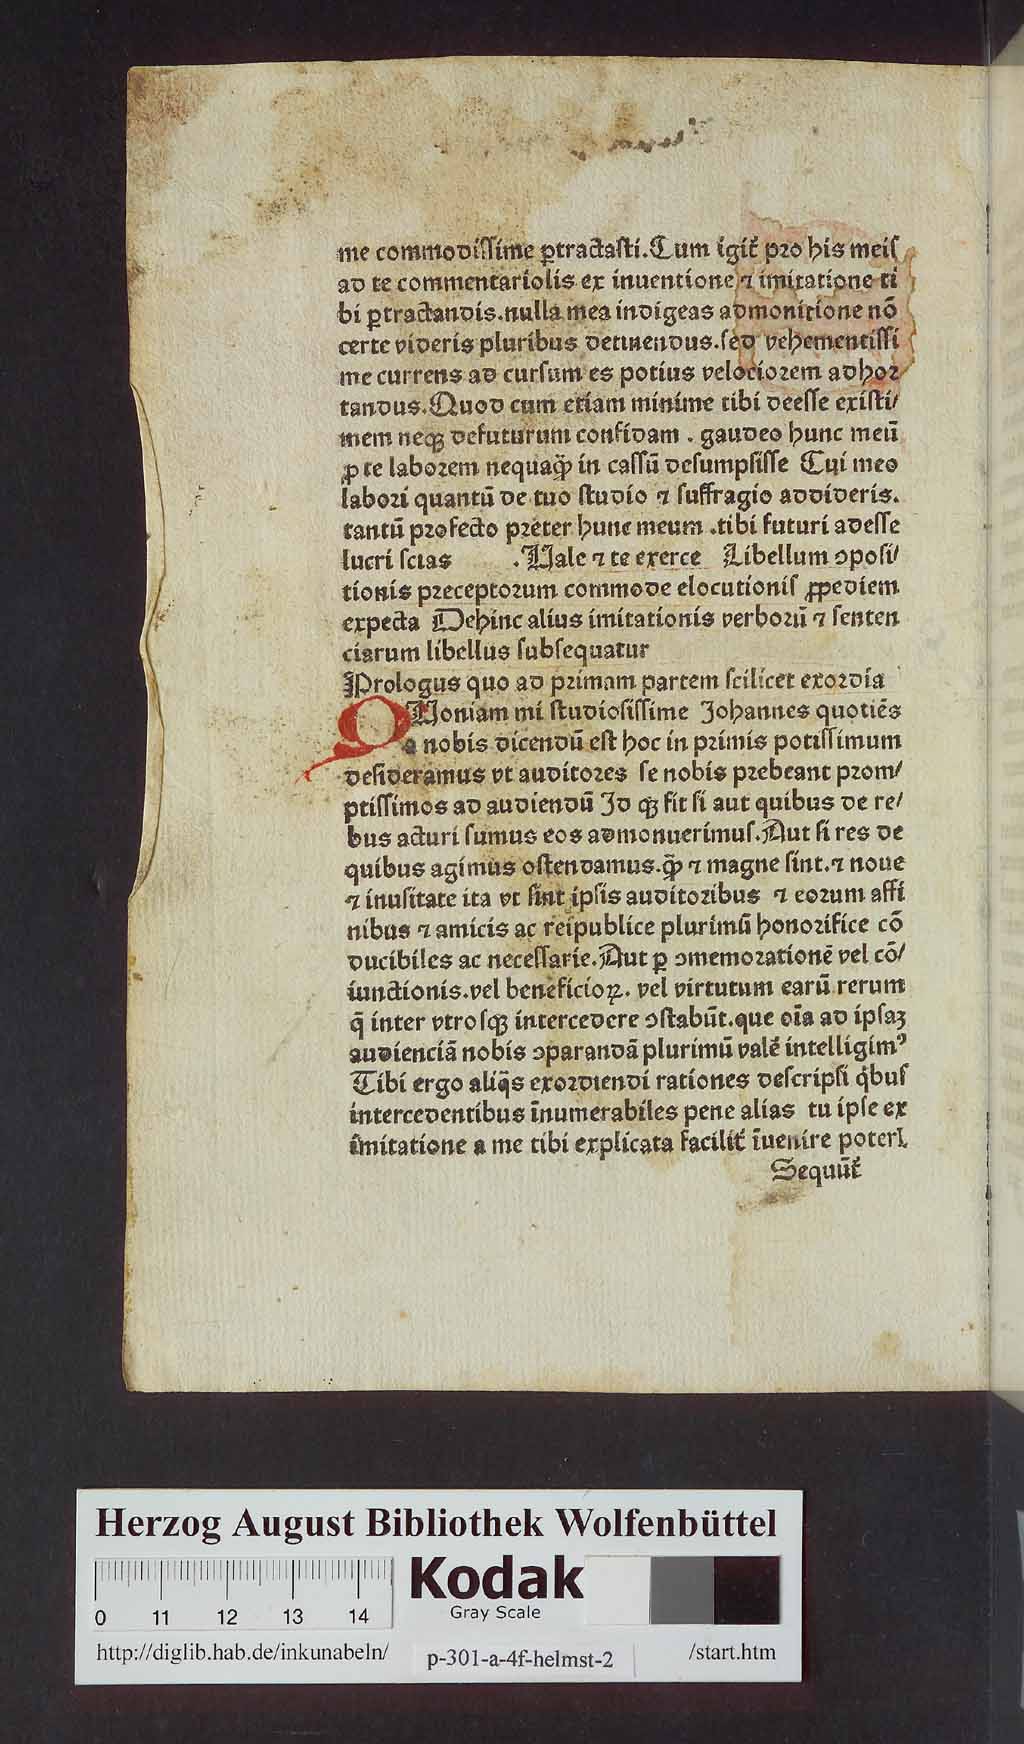 me commodissime ꝑtractasti. Cum igit᷑ pro his meis
ad te commentariolis ex inuentione ⁊ imitatione ti
bi ꝑtractandis. nulla mea indigeas admonitione nō
certe videris pluribus detinendus. sed vehementissi
me currens ad cursum es potius velociorem adhor
tandus. Quod cum etiam minime tibi deesse existi/
mem neqꝫ defuturum confidam . gaudeo hunc meū
ꝓ te laborem nequaꝙ̄ in cassū desumpsisse Cui meo
labori quantū de tuo studio ⁊ suffragio addideris.
tantū profecto preter hunc meum . tibi futuri adesse
lucri scias . Uale ⁊ te exerce Libellum ↄposi/
tionis preceptorum commode elocutionis ꝓpediem
expecta Dehinc alius imitationis verborū ⁊ senten
ciarum libellus subsequatur
Prologus quo ad primam partem scilicet exordia
QUoniam mi studiosissime Johannes quotiēs
a nobis dicendū est hoc in primis potissimum
desideramus vt auditores se nobis prebeant prom/
ptissimos ad audiendū Id qꝫ fit si aut quibus de re/
bus acturi sumus eos admonuerimus. Aut si res de
quibus agimus ostendamus. ꝙ̄ ⁊ magne sint. ⁊ noue
⁊ inusitate ita vt sint ipsis auditoribus ⁊ eorum affi
nibus ⁊ amicis ac reipublice plurimū honorifice cō
ducibiles ac necessarie. Aut ꝑ ↄmemorationē vel cō/
iunctionis. vel beneficioꝝ. vel virtutum earū rerum
q̄ inter vtrosqꝫ intercedere ↄstabūt. que oīa ad ipsaꝫ
audienciā nobis ↄparandā plurimū valē intelligimꝰ
Tibi ergo aliq̄s exordiendi rationes descripsi qͥbus
intercedentibus īnumerabiles pene alias tu ipse ex
imitatione a me tibi explicata facilit᷑ īuenire poterꝭ
Sequūt᷑
Herzog August Bibliothek Wolfenbüttel
Kodak
Gray Scale
0 11 12 13 14
http://diglib.hab.de/inkunabeln/ p-301-a-4f-helmst-2 /start.htm